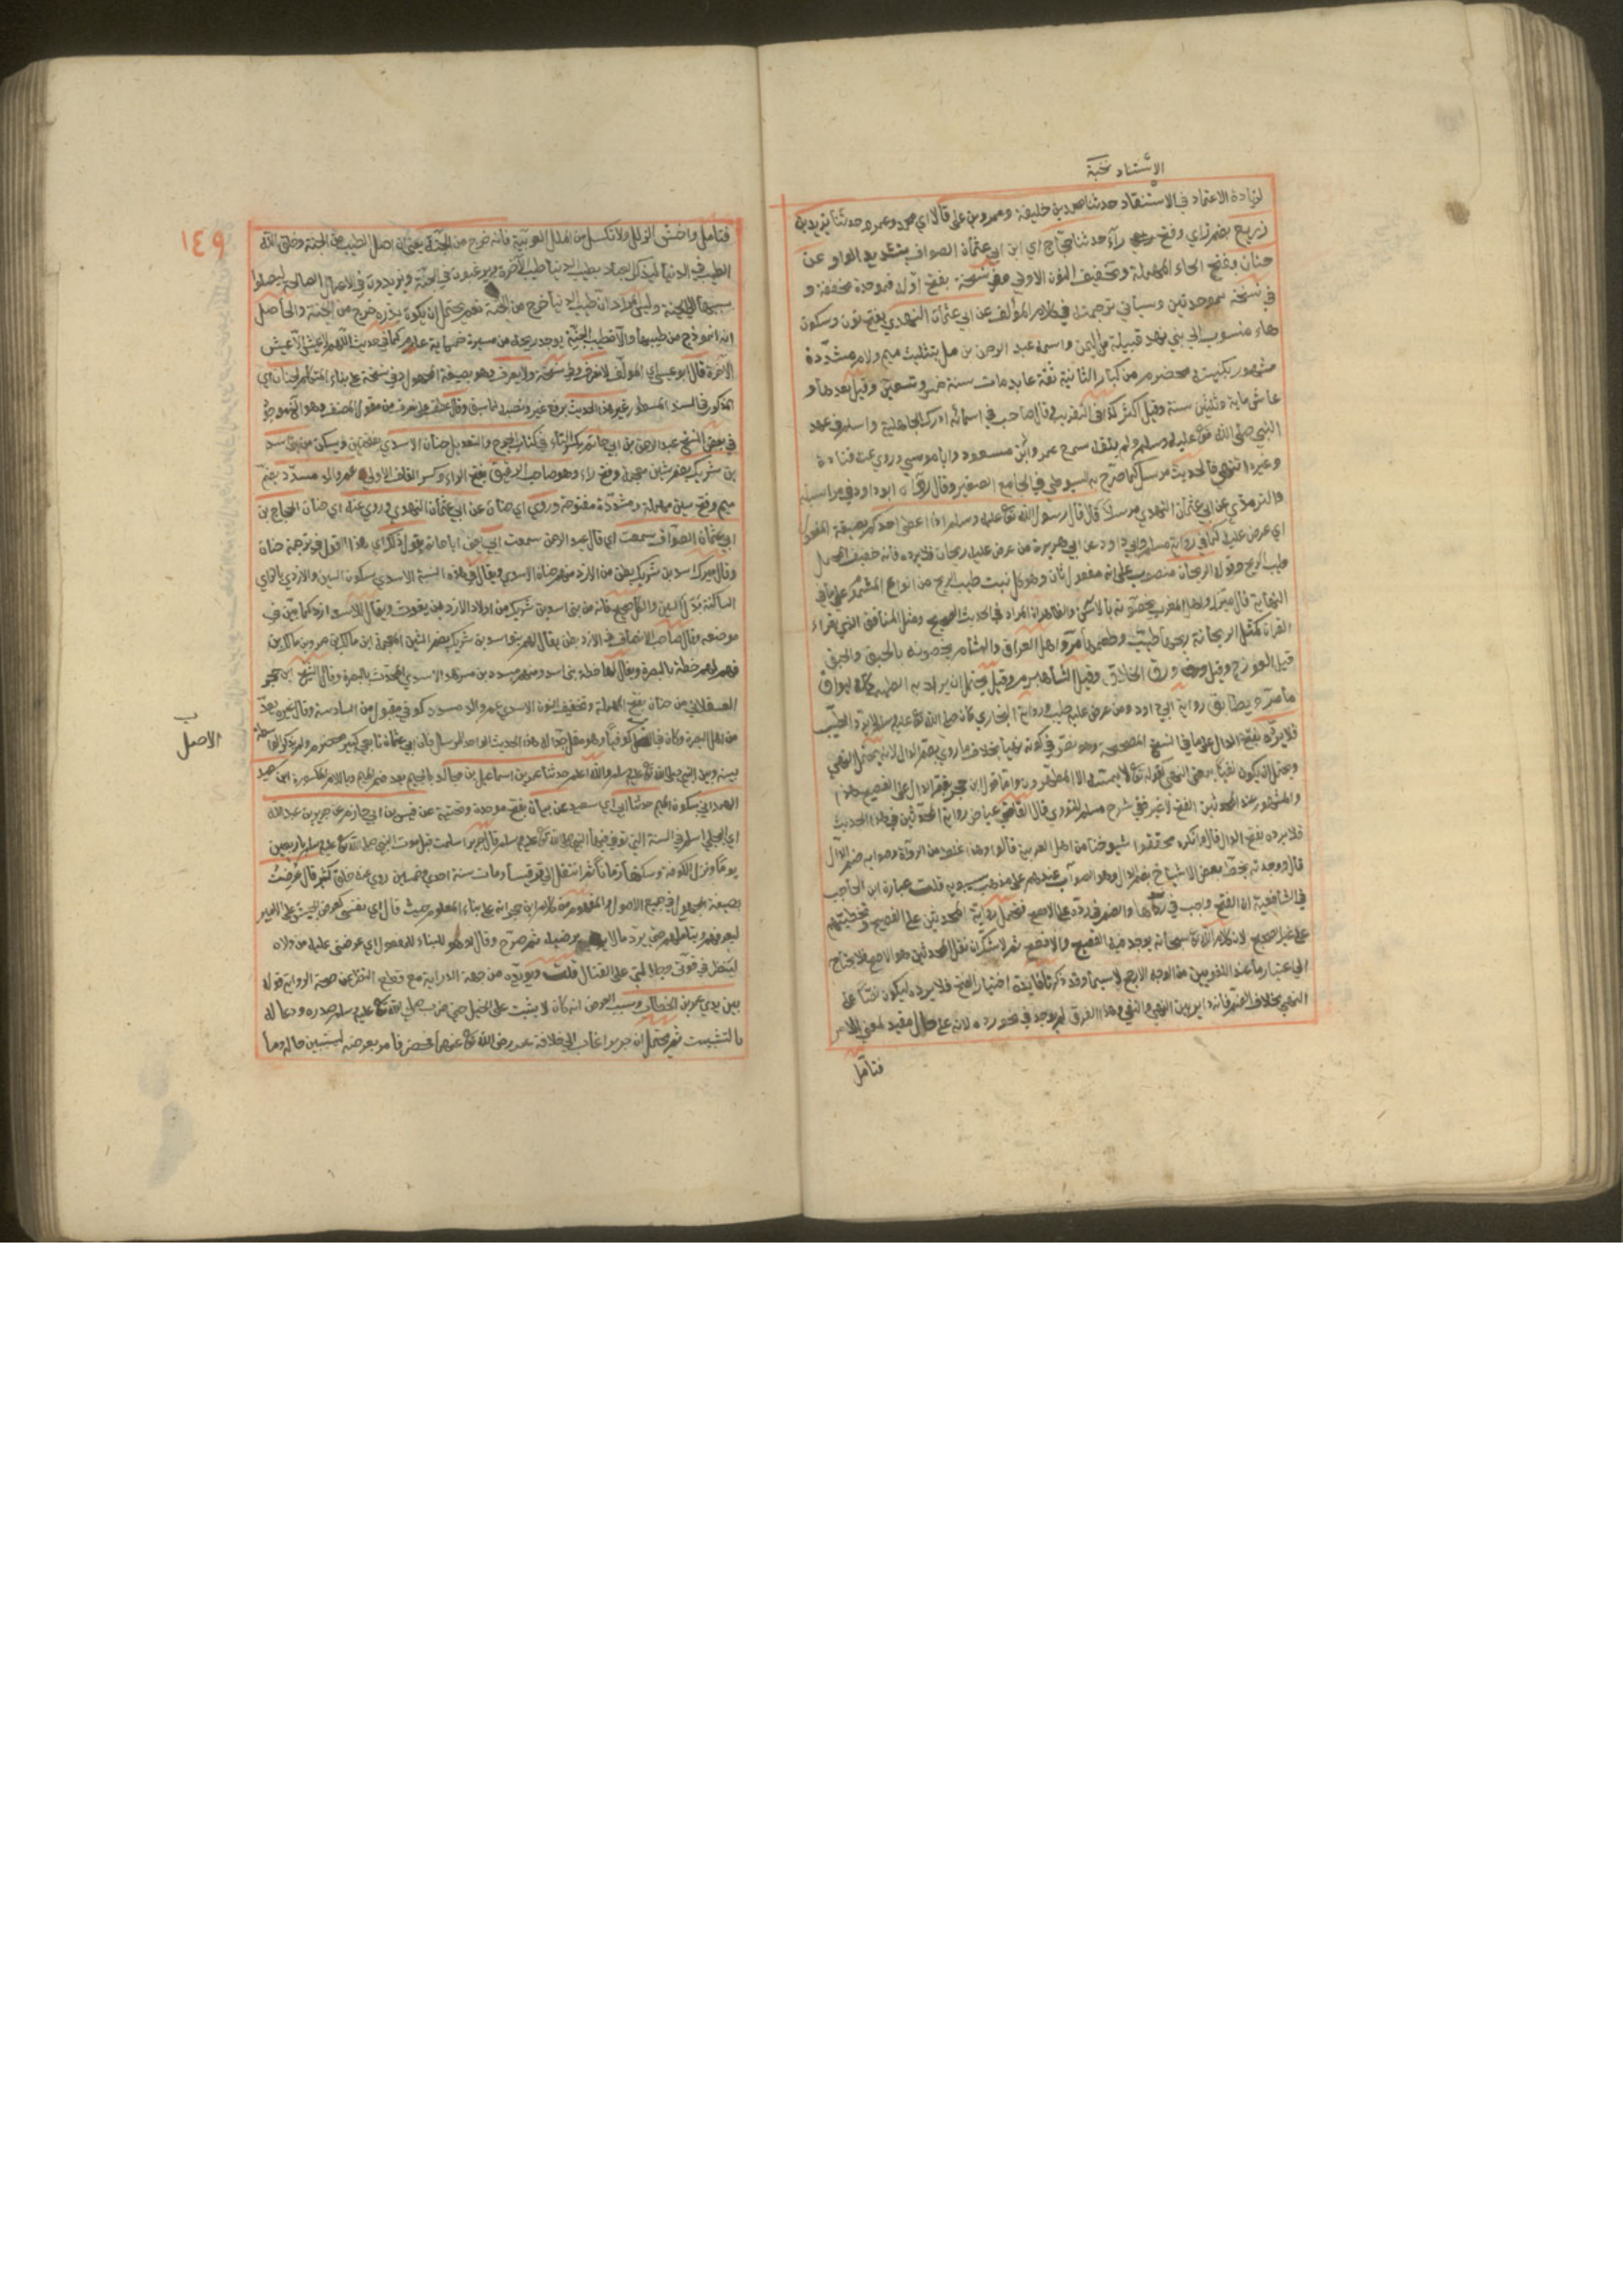 الاسناد نخبة
لزيادة الاعتماد في الاستنقاد حدثنا محمد بن خليفة وعمرو بن علي قالا اي محمد وعمرو حدثنا يزيد بن
زريع بضم زاي وفتح راء حدثنا حجاج اي ابن ابي عثمان الصواف بتشديد الواو عن
حنان بفتح الحاء المهملة وتخفيف النون الاولى وفي نسخة بفتح اوله فموحدة مخففة و
في نسخة بموحدتين وسيأتي ترجمته في كلام المؤلف عن ابي عثمان النهدي بفتح نون وسكون
هاء منسوب الى بني نهد قبيلة من اليمن واسمه عبد الرحمن بن مل بتثليث ميم ولام مشددة
مشهور بكنيته مخضرم من كبار الثانية ثقة عابد مات سنة خمس وتسعين وقيل بعدها و
عاش ماية وثلثين سنة وقيل اكثر كذا في التقريب قال صاحب في اسمائه ادرك الجاهلية واسلم في عهد
النبي صلى الله تع عليه وسلم ولم يلقه سمع عمر وابن مسعود وابا موسى وروى عنه قتادة
وغيره انتهى فالحديث مرسل كما صرح به السيوطي في الجامع الصغير وقال رواه ابو داود في مراسيله
والترمذي عن ابي عثمان النهدي مرسلا قال قال رسول الله تع عليه وسلم اذا اعطي احدكم بصيغة المفعول
اي عرض عليه كما في رواية مسلم وابي داود عن ابي هريرة من عرض عليه ريحان فلا يرده فانه خفيف المحمل
طيب الريح وقوله الريحان منصوب على انه مفعول ثان وهو كل نبت طيب الريح من انواع المشموم على ما في
النهاية قال ميرك واهل المغرب يخصونه بالآس والظاهر انه المراد في الحديث الصحيح ومثل المنافق الذي يقراء
القرآن كمثل الريحانة ريحها طيب وطعمها مر واهل العراق والشام يخصونه بالحبق والحبق
قيل الفوذنج وقيل ورق الخلاف وقيل الشاهسبرم وقيل يحتمل ان يراد به الطيب كله ليوافق
ما مر ويطابق رواية ابي داود ومن عرض عليه طيب ورواية البخاري كان صلى الله تع عليه وسلم لا يرد الطيب
فلا يرده بفتح الدال على ما في النسخ المصححة وهو نص في كونه نهيا بخلاف ما روي بضم الدال لانه يحتمل النهي
ويحتمل ان يكون نفيا بمعنى النهي كقوله تع لا يمسه الا المطهرون واما قول ابن حجر بضم الدال على الفصيح
والمشهور عند المحدثين الفتح لا غير ففي شرح مسلم للنووي قال القاضي عياض رواية المحدثين في هذا الحديث
فلا يرده بفتح الدال قال وانكره محققوا شيوخنا من اهل العربية قالوا وهذا غلط من الرواة وصوابه ضم الدال
قال ووجدته بخط بعض الاشياخ بضم الدال وهو الصواب عندهم على مذهب سيبويه قلت عبارة ابن الحاجب
في الشافعية ان الفتح واجب في ردها والضم في رده على الافصح فتحمل رواية المحدثين على الفصيح وتخطيتهم
على غير صحيح لان كلام الله سبحانه يوجد فيه الفصيح والافصح ثم لا شك ان نقل المحدثين هو الاصح فلا يحتاج
الى اعتبار ما عند اللغويين من الوجه الارجح لا سيما وقد ذكرنا فايدة اختيار الفتح فلا يرده ليكون نصا على
النهي بخلاف الضم فانه داير بين النهي والنفي وهذا الفرق لم يوجد في نحو رده لانه على كل حال مقيد لمعنى الامر
فتامل
١٤٩
فتامل واخش الزلل ولا تكسل من الملل العربية فانه خرج من الجنة يعني ان اصل الطيب من الجنة وخلق الله
الطيب في الدنيا ليذكر العباد بطيب الدنيا طيب الآخرة ويرغبون في الجنة ويزيدون في الاعمال الصالحة ليصلوا
بسببها الى الجنة وليس المراد ان طيب الدنيا خرج من الجنة نعم يحتمل ان يكون بذره خرج من الجنة والحاصل
انه انموذج من طيبها والا فطيب الجنة يوجد ريحه من مسيرة خمسماية عام كما في حديث اللهم لا عيش الا عيش
الآخرة قال ابو عيسى اي المؤلف لا نعرف وفي نسخة ولا يعرف وهو بصيغة المجهول وفي نسخة على بناء المتكلم لحنان اي
المذكور في السند المسطور غير هذا الحديث برفع غير ونصبه لما سبق وقال عطف على نعرف من مقول المصنف وهو الى موجود
في بعض النسخ عبد الرحمن بن ابي حاتم بكسر التاء في كتاب الجرح والتعديل حنان الاسدي بفتحتين ويسكن من بني اسد
بن شريك بضم شين معجمة وفتح راء وهو صاحب الرقيق بفتح الراء وكسر القاف الاولى عم والد مسدد بضم
ميم وفتح سين مهملة ومشددة مفتوحة وروى اي حنان عن ابي عثمان النهدي وروى عنه اي حنان الحجاج بن
ابي عثمان الصواف سمعت اي قال عبد الرحمن سمعت ابي يعني ابا حاتم يقول ذلك اي هذا القول في ترجمة حنان
وقال ميرك اسد بن شريك بطن من الازد منهم حنان الاسدي ويقال في هذه النسبة الاسدي بسكون السين والازدي بالزاي
الساكنة بدل السين والكل صحيح فانه من بني اسد بن شريك من اولاد الازد بن يغوث ويقال للاسد ازد كما بين في
موضعه وقال صاحب الانصاف في الازد بطن يقال لهم بنو اسد بن شريك بضم الشين المعجمة ابن مالك بن عمرو بن مالك بن
فهم لهم خطة بالبصرة ويقال لها خطة بني اسد ومنهم مسدد بن مسرهد الاسدي المحدث بالبصرة وقال الشيخ ابن حجر
العسقلاني من حنان بفتح المهملة وتخفيف النون الاسدي عم والد مسدد كوفي مقبول من السادسة وقال غيره يعد
من اهل البصرة وكان في الاصل كوفيا وهو مقل جدا له هذا الحديث الواحد المرسل فان ابي عثمان تابعي كبير مخضرم ولم يذكر الواسطة
ب
الاصل
بينه وبين النبي صلى الله تع عليه وسلم والله اعلم حدثنا عمر بن اسماعيل بن مجالد بالجيم بعد ضم الميم وباللام المكسورة ابن سعيد
الهمداني بسكون الميم حدثنا ابي اي سعيد عن بيان بفتح موحدة وتحتية عن قيس بن ابي حازم عن جرير بن عبد الله
اي البجلي اسلم في السنة التي توفي فيها النبي صلى الله تع عليه وسلم وقال جرير اسلمت قبل موت النبي صلى الله تع عليه وسلم باربعين
يوما ونزل الكوفة وسكنها زمانا ثم انتقل الى قرقيسا ومات سنة احدى وخمسين روى عنه خلق كثير قال عرضت
بصيغة المجهول في جميع الاصول والمفهوم من كلام ابن حجر انه على بناء المعلوم حيث قال اي نفسي كعرض الجيش على الامير
ليعرفهم ويتاملهم حتى يرد من لا يرضيه ثم صرح وقال او هو للبناء للمفعول اي عرضني عليه من ولاه
لينظر في قوتي وجلادتي على القتال قلت ويؤيده من جهة الدراية مع قطع النظر عن صحة الرواية قوله
بين يدي عمر بن الخطاب وسبب العرض انه كان لا يثبت على الخيل حتى ضرب صلى الله تع عليه وسلم صدره ودعا له
بالتثبيت ثم يحتمل ان جريرا غاب الى خلافة عمر رضي الله تع عنهما فحضر فامر بعرضه ليتبين حاله وما